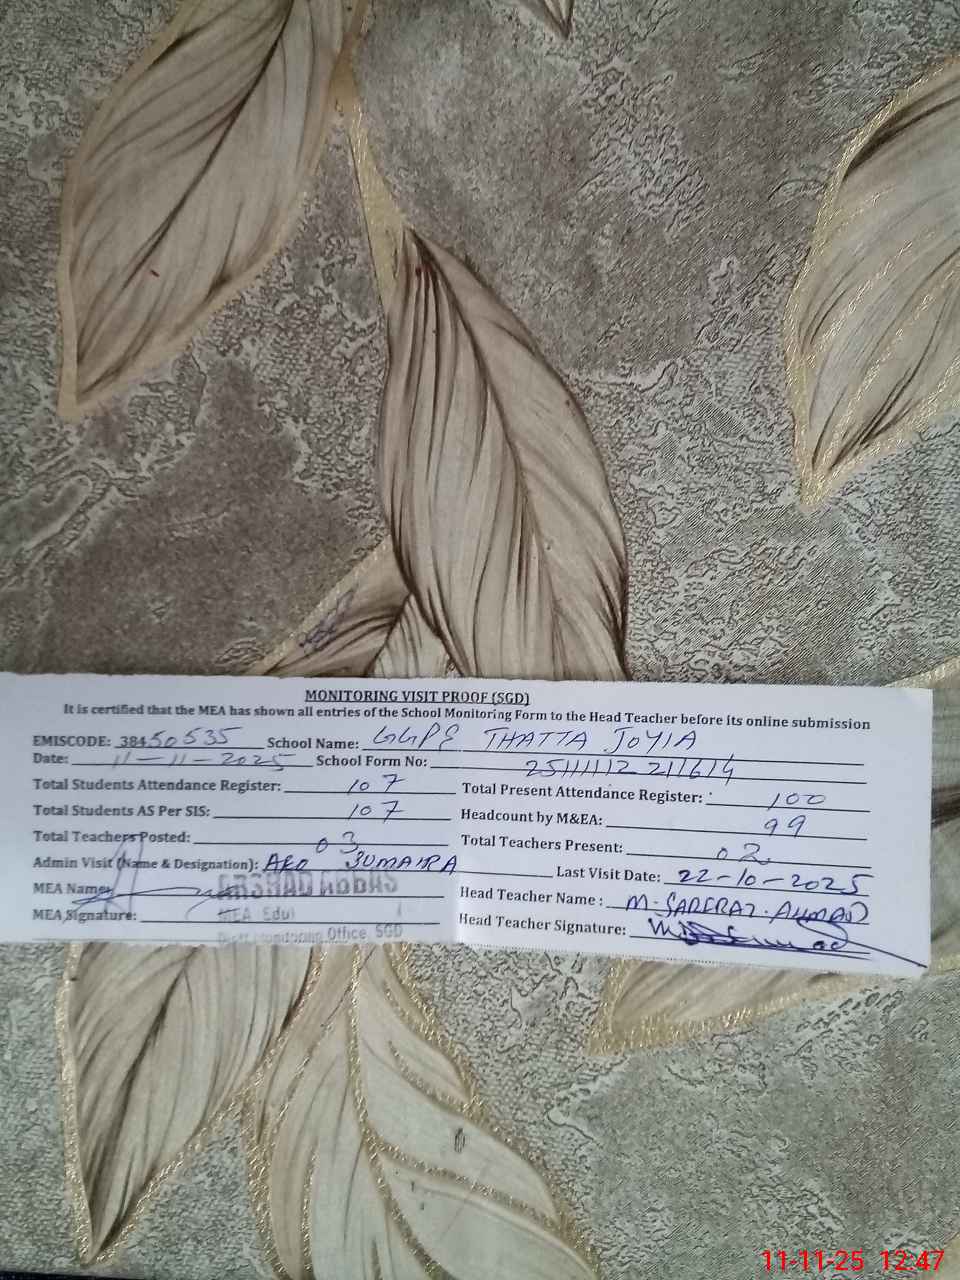 MONITORING VISIT PROOF (SGD)
It is certified that the MEA has shown all entries of the School Monitoring Form to the Head Teacher before its online submission
EMISCODE: 38450535 School Name: GGPS THATTA JOYIA
Date: 11-11-2025 School Form No:
Total Students Attendance Register: 107 Total Present Attendance Register: 100
Total Students AS Per SIS: 107 Headcount by M&EA: 99
Total Teachers Posted: 03 Total Teachers Present: 02
Admin Visit (Name & Designation): AEO SUMAIRA Last Visit Date: 22-10-2025
MEA Name: ARSHAD ABBAS Head Teacher Name : M. SARFRAZ. AHMAD
MEA Signature: MEA (Edu) Head Teacher Signature:
Distt Monitoring Office, SGD
11-11-25 12:47